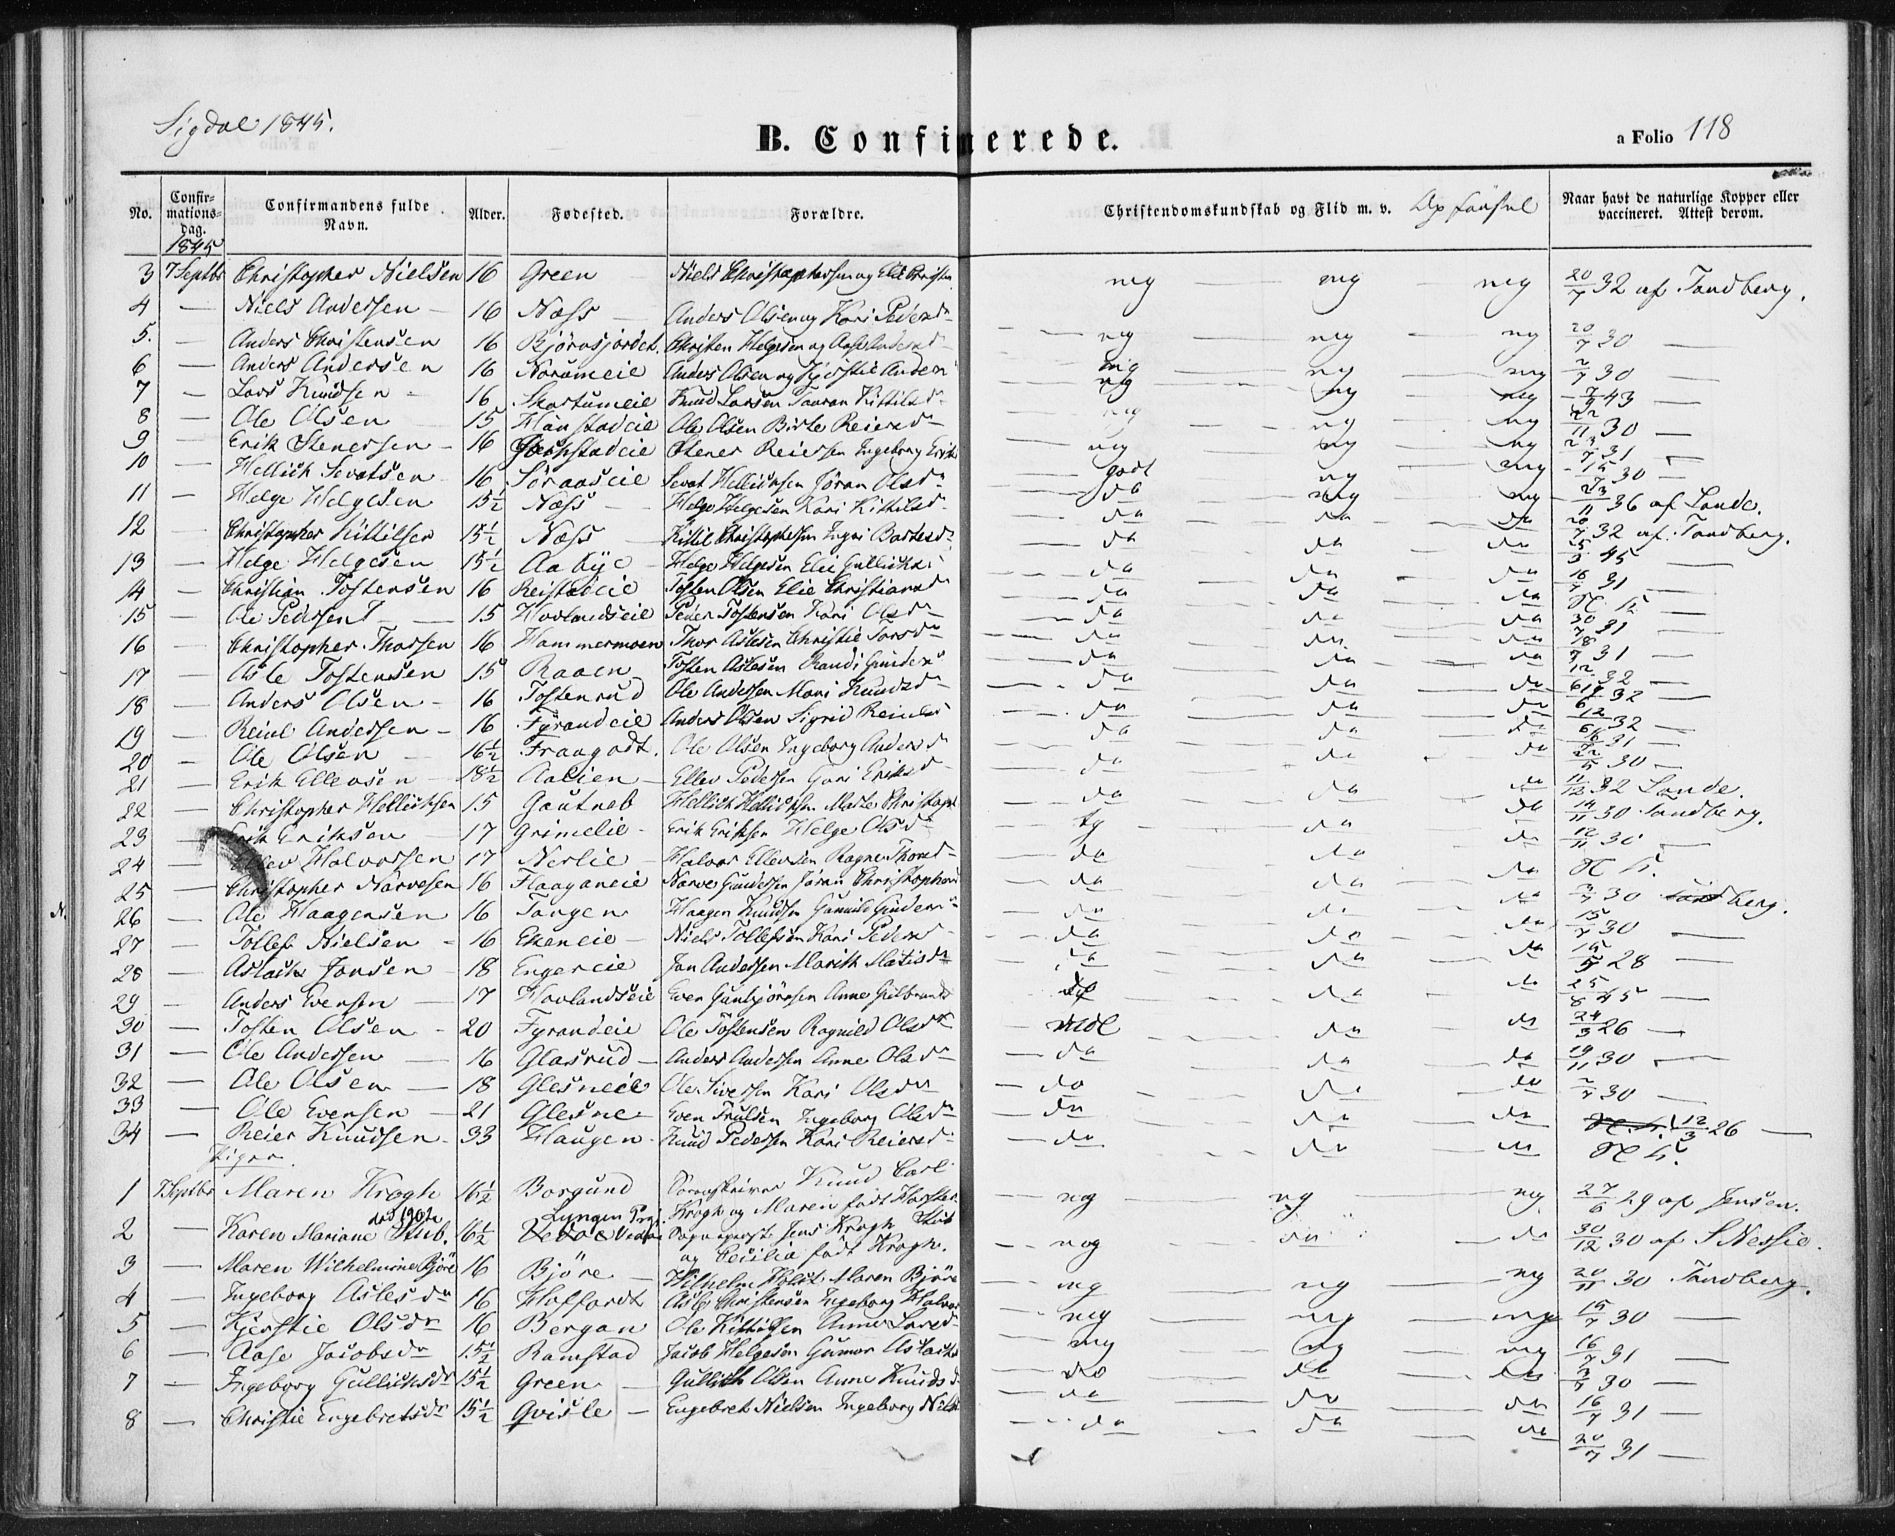 Sigdal 1845.
B. Confirmerede.
a Folio 118
No. Confirmations-dag. Confirmandens fulde Navn. Alder. Fødested. Forældre. Christendomskundskab og Flid m. v. Opførsel Naar havt de naturlige Kopper eller vaccineret. Attest derom.
1845
3 7 Septbr Christopher Nielsen 16 Green Niels Christophersen og meg meg meg 20/7 32 af Tandberg.
4 — Niels Andersen — 16 Næss — Anders Olsen og Kari Pedersd — mg — mg — mg 20/7 30 —
5. — Anders Christensen 16 Christen Helgesen og mg mg mg 2/7 30 —
6 — Anders Andersen 16 Norumeie Anders Olsen og Kjerstie Anders mg mg mg 43 —
7 — Lars Knudsen — 16 Skartumeie Knud Larsen Kittilsd mg mg 11 30 —
8 — Ole Olsen 15 Haustadeie Ole Olsen Birte Reiersd mg mg mg 31 —
9 — Erik Stenersen — 16 Stener Reiersen Ingeborg Eriks godt mg mg 30 —
10 — Hellick Sevatsen 16 Søraaseie Sevat Hellicksen Jøran Olsd do mg mg 36 af Lande.
11 — Helge Helgesen 15½ Næss — Helge Helgesen Kari Kittilsd do do do 32 af Tandberg.
12 — Christopher Kittilsen 15½ Næss — Kittil Christophersen Ingri do do do 45 —
13 — Helge Helgesen 15½ Aabye Helge Helgesen Elie Gullicks do do do 16/7 31 —
14 — Christian Tostensen 16 Reistadeie Tosten Olsen Elie Christiansd do do do
15 — Ole Pedersen — 15 Hovlandseie Peder Tostensen Kari Olsd do do do 30/7 31 —
16 — Christopher Thorsen 16 Hammermoen Thor Aslesen Christie Larsd do do do 18/7 31 —
17 — Asle Tostensen 15 Raaen Tosten Aslesen Randi Gunders do do do 32 —
18 — Anders Olsen — 16 Tostenrud Ole Andersen Mari Knudsd do do do 32 —
19 — Reinl Andersen — 16 Fyrandeie Anders Olsen Sigrid Reinls do do do 12/6 32 —
20 — Ole Olsen 16½ Fraagodt. Ole Olsen Ingeborg Andersd do do do 31 —
21 — Erik Ellevsen 18½ Aalien — Ellev Pedersen Gari Eriksd do do do 30 —
22 Christopher Hellicksen 15 Gautneb Hellick Hellicksen Marte Christoph do do 11/12 32 Lande.
23 — Erik Eriksen 17 Grimelie — Erik Eriksen Helge Olsd tg do do 14/11 30 Tandberg.
24 — Ellev Halvorsen 17 Nerlie — Halvor Ellevsen Ragne Thorsd do do do 12/11 30 —
25 — Christopher Narvesen 16 Flaaganeie Narve Gundersen Jøran Christophersd do do do
26 — Ole Haagensen 16 Tangen Haagen Knudsen Gunild Gunders do do do 30 berg.
27 — Tollef Nielsen — 16 Ekeneie — Niels Tollefsen Kari Pedersd do do do 15/7 30 —
28 — Aslack Jonsen — 18 Engereie Jon Andersen Marith Matisd do do do 28 —
29 — Anders Evensen — 17 Hovlandseie Even Gunbjørnsen Anne Gulbrands do do do 25/8 45 —
30 — Tosten Olsen — 20 Fyrandeie Ole Tostensen Ragnild Olsd mdl do do 24/3 26 —
31 — Ole Andersen — 16 Glasrud — Anders Andersen Anne Olsd do do do 19/11 30 —
32 — Ole Olsen — 18 Glesneeie Ole Siversen Kari Olsd do do do 2/7 30 —
33 — Ole Evensen — 21 Glesne — Even Trulsen Ingeborg Olsd do do do 12/3 26 —
34 — Reier Knudsen — 33 Haugen — Knud Pedersen Kari Reiersd do do do
Piger
1 7 Septbr Maren Krogh 16½ Borgund Sorenskriver Knud Carl Krogh og Maren født mg — mg — mg 27/6 29 af Jensen.
2 — Karen Mariane Stub. død 1902 16½ Lyngen Sogneprest Jens Krogh Stub og Cecilia født Krogh. mg do do 30/12 30 af
3 — Maren Wilhelmine Bjøre 16 Bjøre — Wilhelm Holst Maren Bjøre mg mg mg 20/11 30 Tandberg.
4 — Ingeborg Aslesdr 16 Haffordt Asle Christensen Ingeborg Halvor mg mg mg 15/7 30 —
5 — Kjerstie Olsdr 16 Bergan Ole Kittilsen Anne Larsd mg mg mg 16/7 31 —
6 — Aase Jacobsdr 15½ Ramstad Jacob Helgesen Gunor Aslacks do do do 2/7 30 —
7 — Ingeborg Gullicksdr 15½ Green — Gullick Olsen Anne Knudsd do do do 16/7 31 —
8 — Christie Engebretsdr 15½ Qvisle — Engebret Nielsen Ingeborg Niels do do do 20/7 31 —